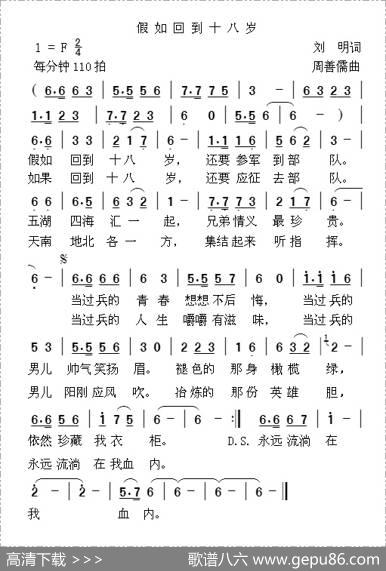 假如回到十八岁
1 = F 2/4 刘 明词
每分钟 110 拍 周善儒曲
( 6·6 6 3 | 5·5 5 6 | 7·7 7 5 | 3 － | 6 3 2 3 |
1·1 2 3 | 7·7 2 3 | 6 0 | 5·5 5 6 | 6 － )
6·6 | 3 3 | 2 1 7 | 6 － | 1·1 1 6 | 5 6 3 | 2 － |
假如 回到 十八 岁， 还要 参军 到部 队。
如果 回到 十八 岁， 还要 应征 去部 队。
6 6 | 6·5 | 6 3 2 | 1 － | 7·7 7 3 | 2 1 7 | 6 － |
五湖 四海 汇一 起， 兄弟情义 最珍 贵。
天南 地北 各一 方， 集结起来 听指 挥。
6 － | 6·6 6 6 | 6 3 | 5·5 5 7 | 6 0 | 1·1 1 6 |
当过兵的 青春 想想不后 悔， 当过兵的
当过兵的 人生 嚼嚼有滋 味， 当过兵的
5 3 | 5·5 5 6 | 3 － | 3 0 | 2 2 3 | 1 6 | 6 3 2 | 2 － |
男儿 帅气笑扬 眉。 褪色的 那身 橄榄 绿，
男儿 阳刚应风 吹。 冶炼的 那份 英雄 胆，
6·6 5 6 | 1 7 5 | 6 － | 6 － :‖ 6·6 6 7 | 6 1 |
依然 珍藏 我衣 柜。 D.S. 永远流淌 在
永远 流淌 在我血 内。
2 － | 2 － | 5·7 6 | 6 － | 6 － | 6 － ‖
我 血 内。
高清下载 >>> 歌谱八六 www.gepu86.com